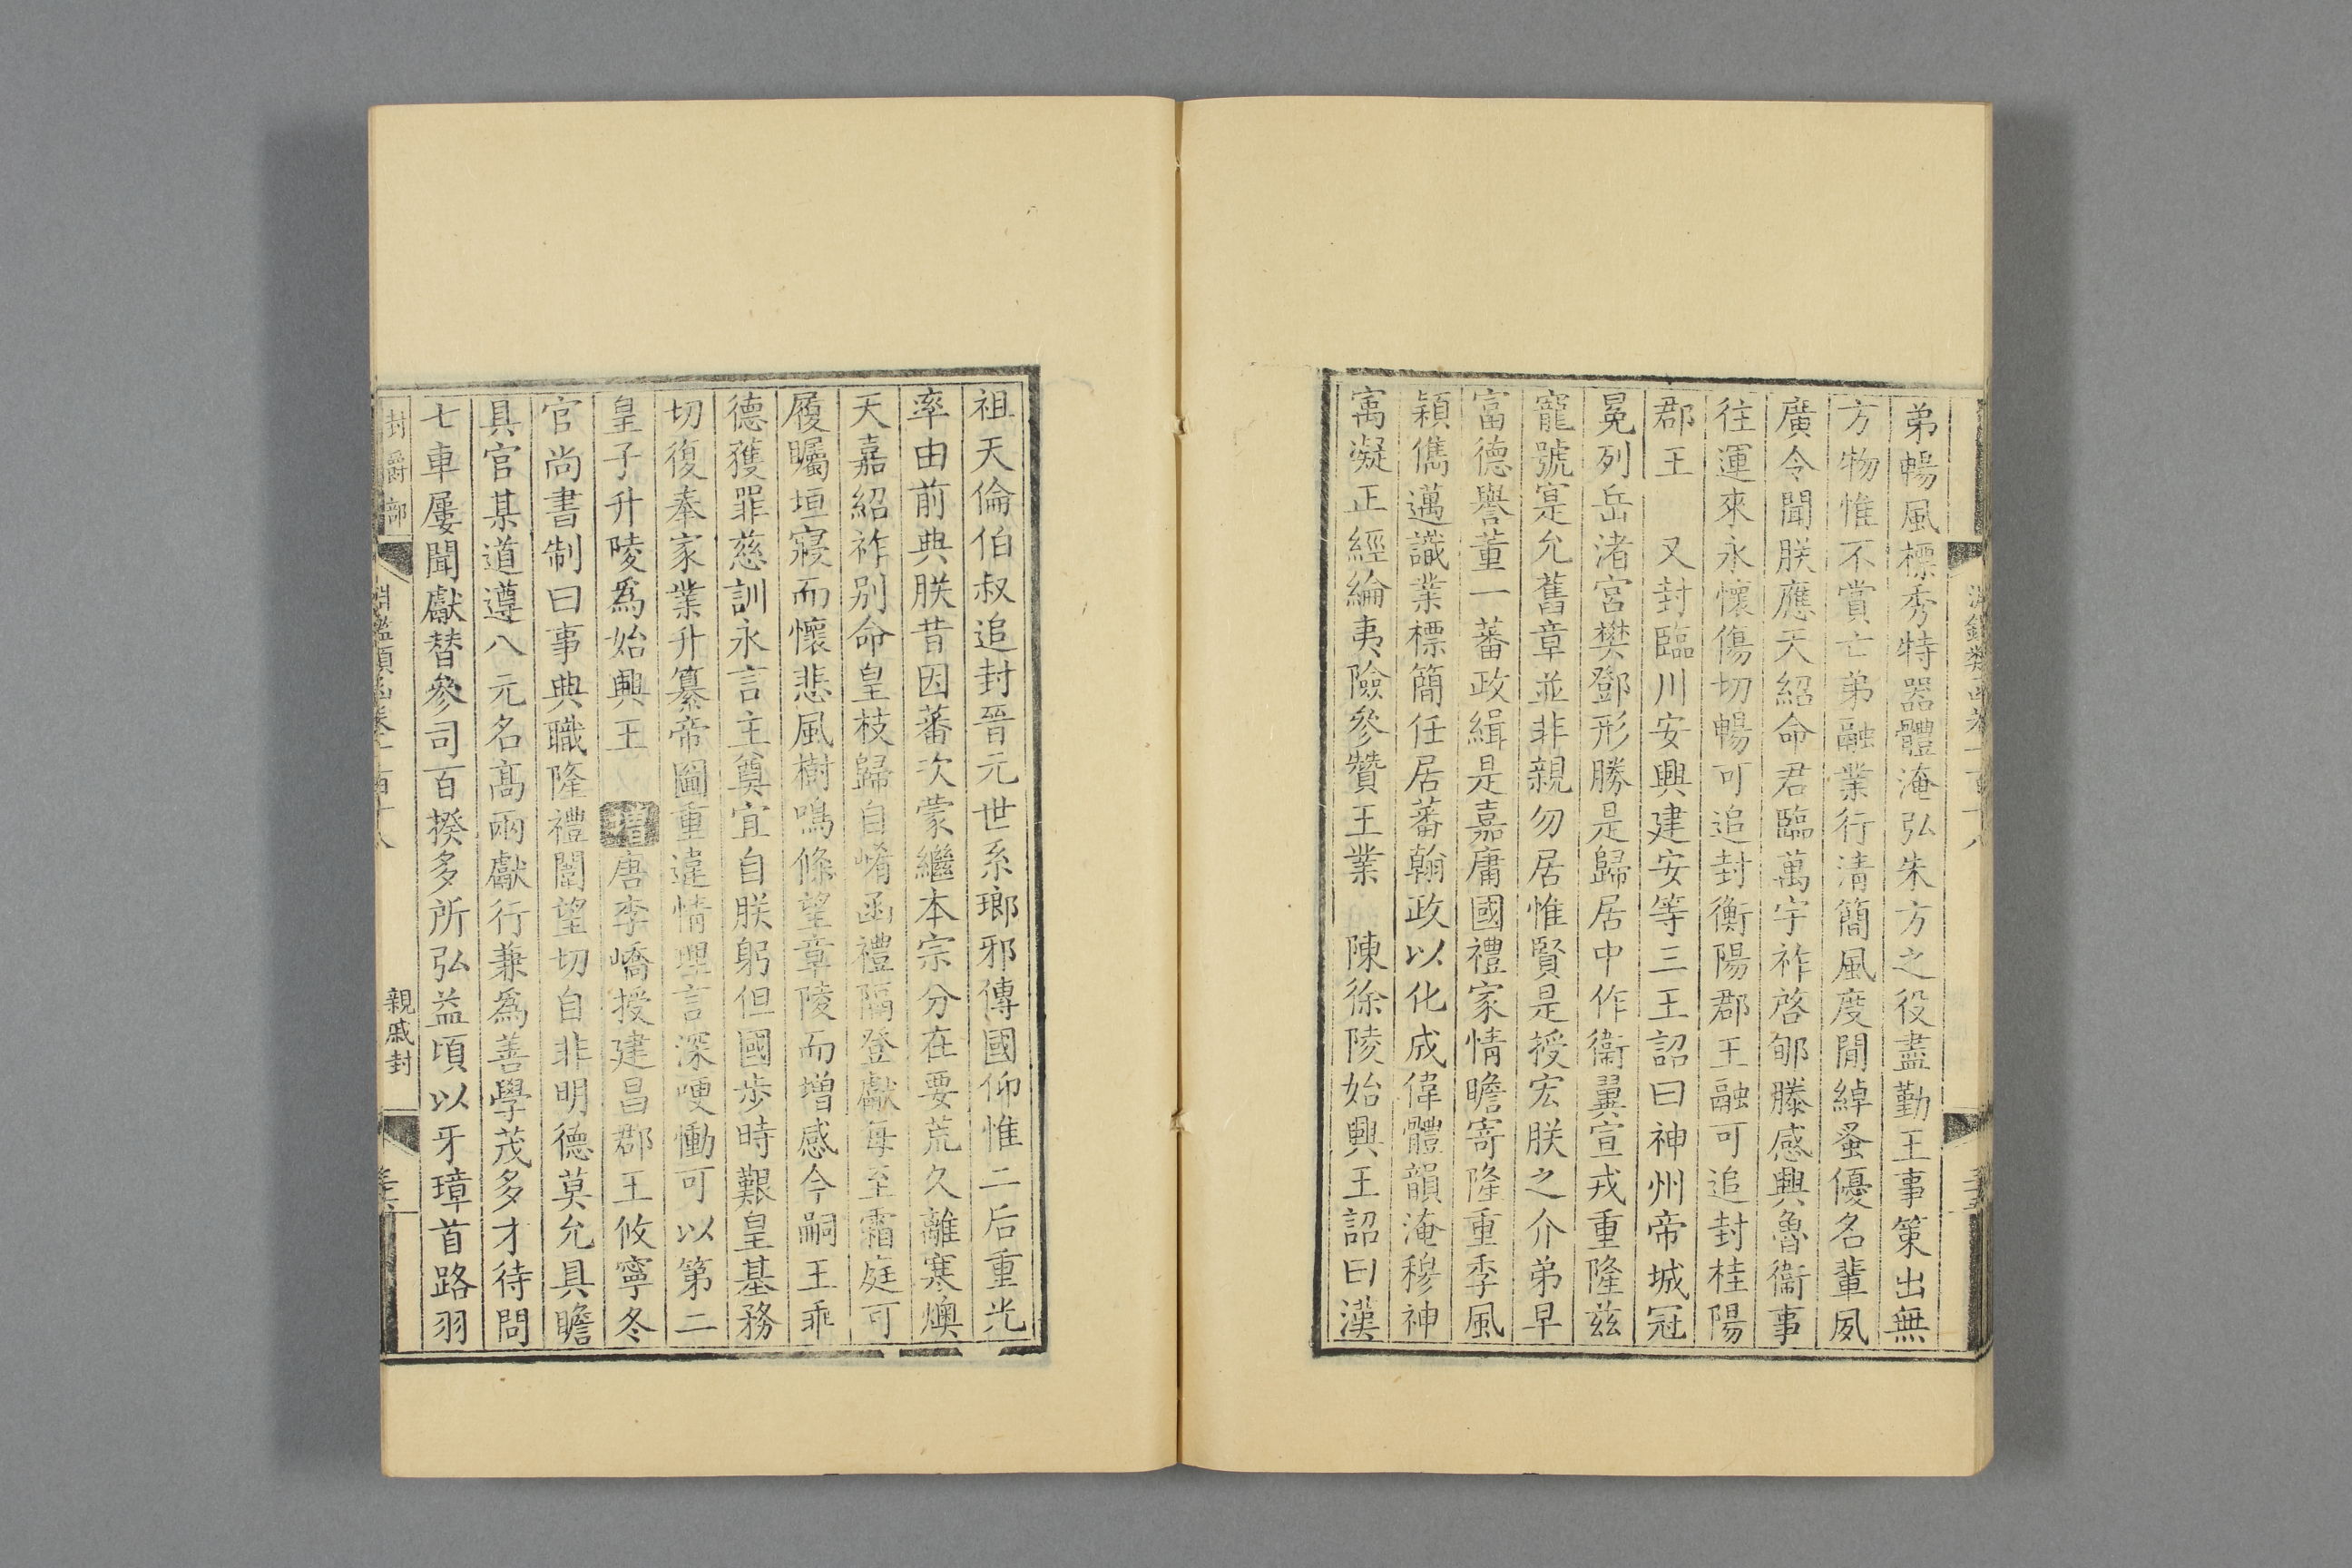 弟暢風標秀特器體淹弘朱方之役盡勤王事策出無
方物惟不賞亡弟融業行清簡風度閒綽蚤優名輩夙
廣令聞朕應天紹命君臨萬宇祚啓郇滕感興魯衞事
往運來永懷傷切暢可追封衡陽郡王融可追封桂陽
郡王 又封臨川安興建安等三王詔曰神州帝城冠
冕列岳渚宮樊鄧形勝是歸居中作衞翼宣戎重隆茲
寵號寔允舊章並非親勿居惟賢是授宏朕之介弟早
富德譽董一蕃政緝是嘉庸國禮家情瞻寄隆重季風
穎儁邁識業標簡任居蕃翰政以化成偉體韻淹穆神
寓凝正經綸夷險參贊王業 陳徐陵始興王詔曰漢
祖天倫伯叔追封晉元世系瑯邪傳國仰惟二后重光
率由前典朕昔因蕃次蒙繼本宗分在要荒久離寒燠
天嘉紹祚别命皇枝歸自崤函禮隔登獻每至霜庭可
履矚垣寢而懷悲風樹鳴條望章陵而增感今嗣王乖
德獲罪慈訓永言主奠宜自朕躬但國步時艱皇基務
切復奉家業升纂帝圖重違情理言深哽慟可以第二
皇子升陵爲始興王 增唐李嶠授建昌郡王攸寧冬
官尚書制曰事典職隆禮闈望切自非明德莫允具瞻
具官某道遵八元名高兩獻行兼爲善學茂多才待問
七車屢聞獻替參司百揆多所弘益頃以牙璋首路羽
封爵部
淵鑑類函卷一百十八
親戚封